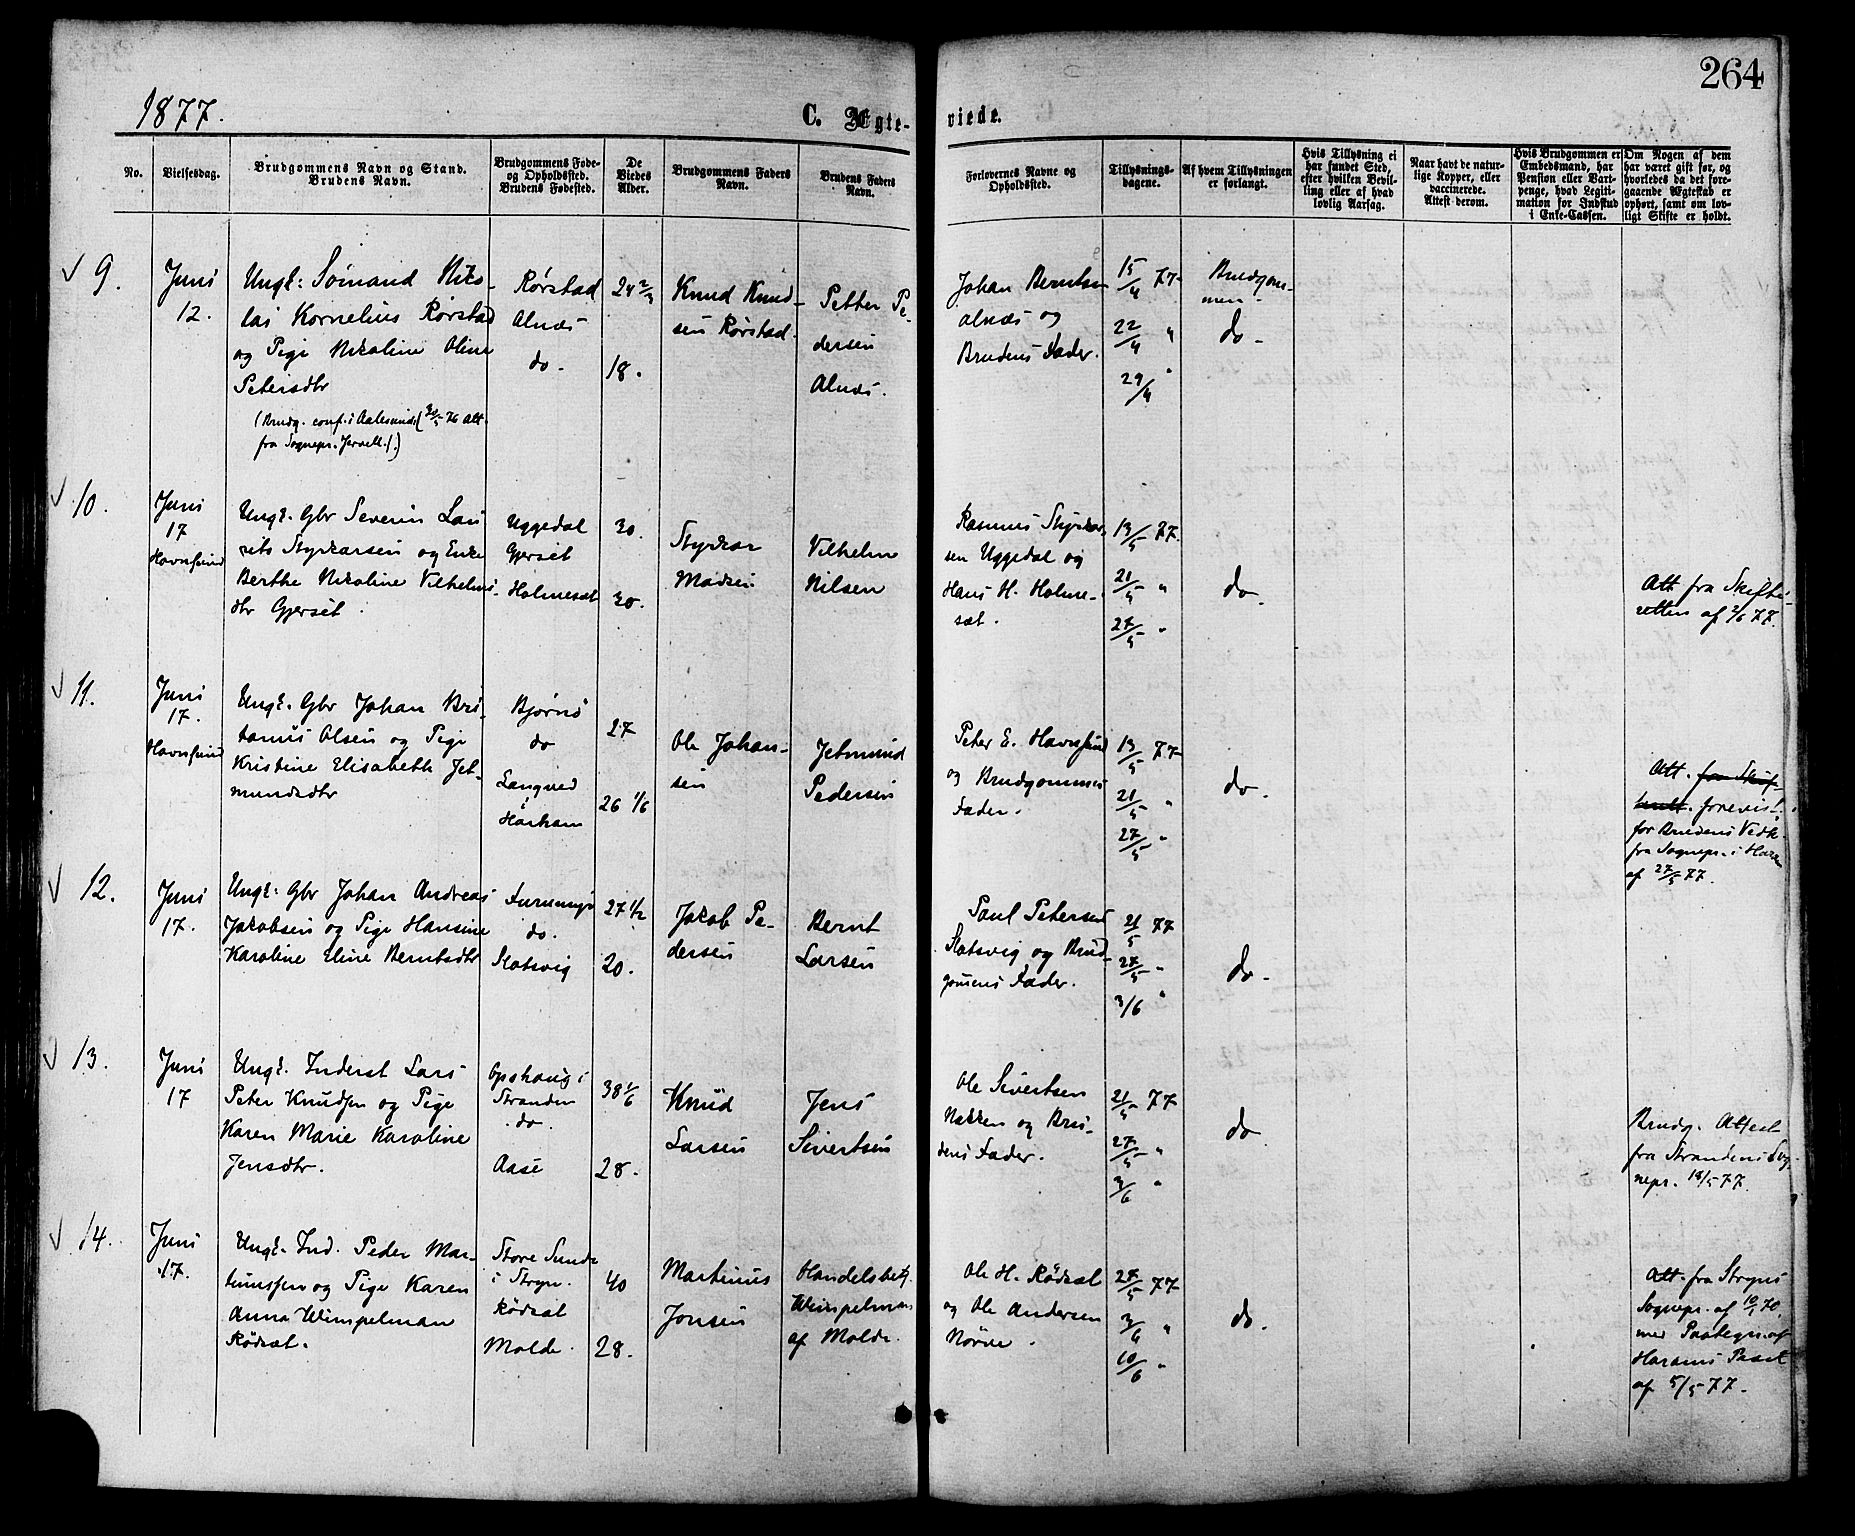 264
1877.
C. Ægteviede.
No.
Vielsesdag.
Brudgommens Navn og Stand.
Brudens Navn.
Brudgommens Føde-
og Opholdssted.
Brudens Fødested.
De
Viedes
Alder.
Brudgommens Faders
Navn.
Brudens Faders
Navn.
Forlovernes Navne og
Opholdssted.
Tillysnings-
dagene.
Af hvem Tillysningen
er forlangt.
Hvis Tillysning ei
har fundet Sted,
efter hvilken Bevil-
ling eller af hvad
lovlig Aarsag.
Naar havt de natur-
lige Kopper, eller
vaccinerede.
Attest derom.
Hvis Brudgommen er
Embedsmand, har
Pension eller Vart-
penge, hvad Legiti-
mation for Indskud
i Enke-Cassen.
Om Nogen af dem
har været gift før, og
hvorledes da det fore-
gaaende Ægteskab er
ophørt, samt om lov-
ligt Skifte er holdt.
9.
Juni
12.
Ungk: Sømand Niko-
lai Kornelius Rørstad
og Pige Nikoline Oline
Petersdtr
(Brudg. conf. i Aalesund (30/5 76 Att.
fra Sognepr. Jervell.).)
Rørstad
Alnæs
do.
24 2/3
18.
Knud Knud-
sen Rørstad.
Petter Pe-
dersen
Alnæs.
Johan Berntsen
Alnæs og
Brudens Fader.
15/4 77.
22/4 "
29/4 "
Brudgom-
men.
do.
10.
Juni
17
Havnsund
Ungk. Gbr Severin Lau
rits Styrkarsen og Enke
Berthe Nikoline Vilhelms-
dtr Gjerset.
Uggedal
Gjerset
Holmeset
30.
30.
Styrkar
Madsen
Vilhelm
Nilsen
Rasmus Styrkar-
sen Uggedal og
Hans H. Holme-
sæt.
13/5 77.
21/5 "
27/5 "
do.
Att fra Skifte-
retten af 2/6 77.
11.
Juni
17.
Havnsund
Ungk. Gbr Johan Kri-
tanus Olsen og Pige
Kristine Elisabeth Jet-
mundsdtr
Bjørnø
do
Langned
i
Harham
27
26 1/6
Ole Johan-
sen
Jetmund
Pedersen
Peter E. Havnsund
og Brudgommens
Fader.
13/5 77.
21/5 "
27/5 "
do.
Att. fra Skif-
forevist
for Brudens Vedk.
fra Sognepr. i Haram
af 27/5 77.
12.
Juni
17.
Ungk: Gbr Johan Andreas
Jakobsen og Pige Hansine
Karoline Eline Berntsdtr
do.
Slotsvig
27 1/2
20.
Jakob Pe-
dersen
Bernt
Larsen
Paul Petersen
Slotsvig og Brud-
gomens Fader.
21/5 77
27/5 "
3/6 "
do.
13.
Juni
17
Ungk. Inderst Lars
Peter Knudsen og Pige
Karen Marie Karoline
Jensdtr.
Opshaug i
Stranden
do.
Aase
38 1/6
28.
Knud
Larsen
Jens
Sivertsen
Ole Sivertsen
Nakken og Bru-
dens Fader.
21/5 77
27/5 "
3/6 "
do.
Brudg. Attest
fra Strandens Sog-
nepr. 18/5 77.
14.
Juni
17.
Ungk. Ind. Peder Mar-
tinussen og Pige Karen
Anna Wimpelman
Rødsæt.
Store Sunde
i Stryn.
Rødsæt
Molde.
40
28.
Martinus
Jonsen
Handelsbetj.
Wimpelman
af Molde.
Ole H. Rødsæt
og Ole Andersen
Nørve.
27/5 77
3/6 "
10/6 "
do.
Att fra Stryns
Sognepr. af 10/1 70,
med Paategn. af
Harams Præst
af 5/5 77.